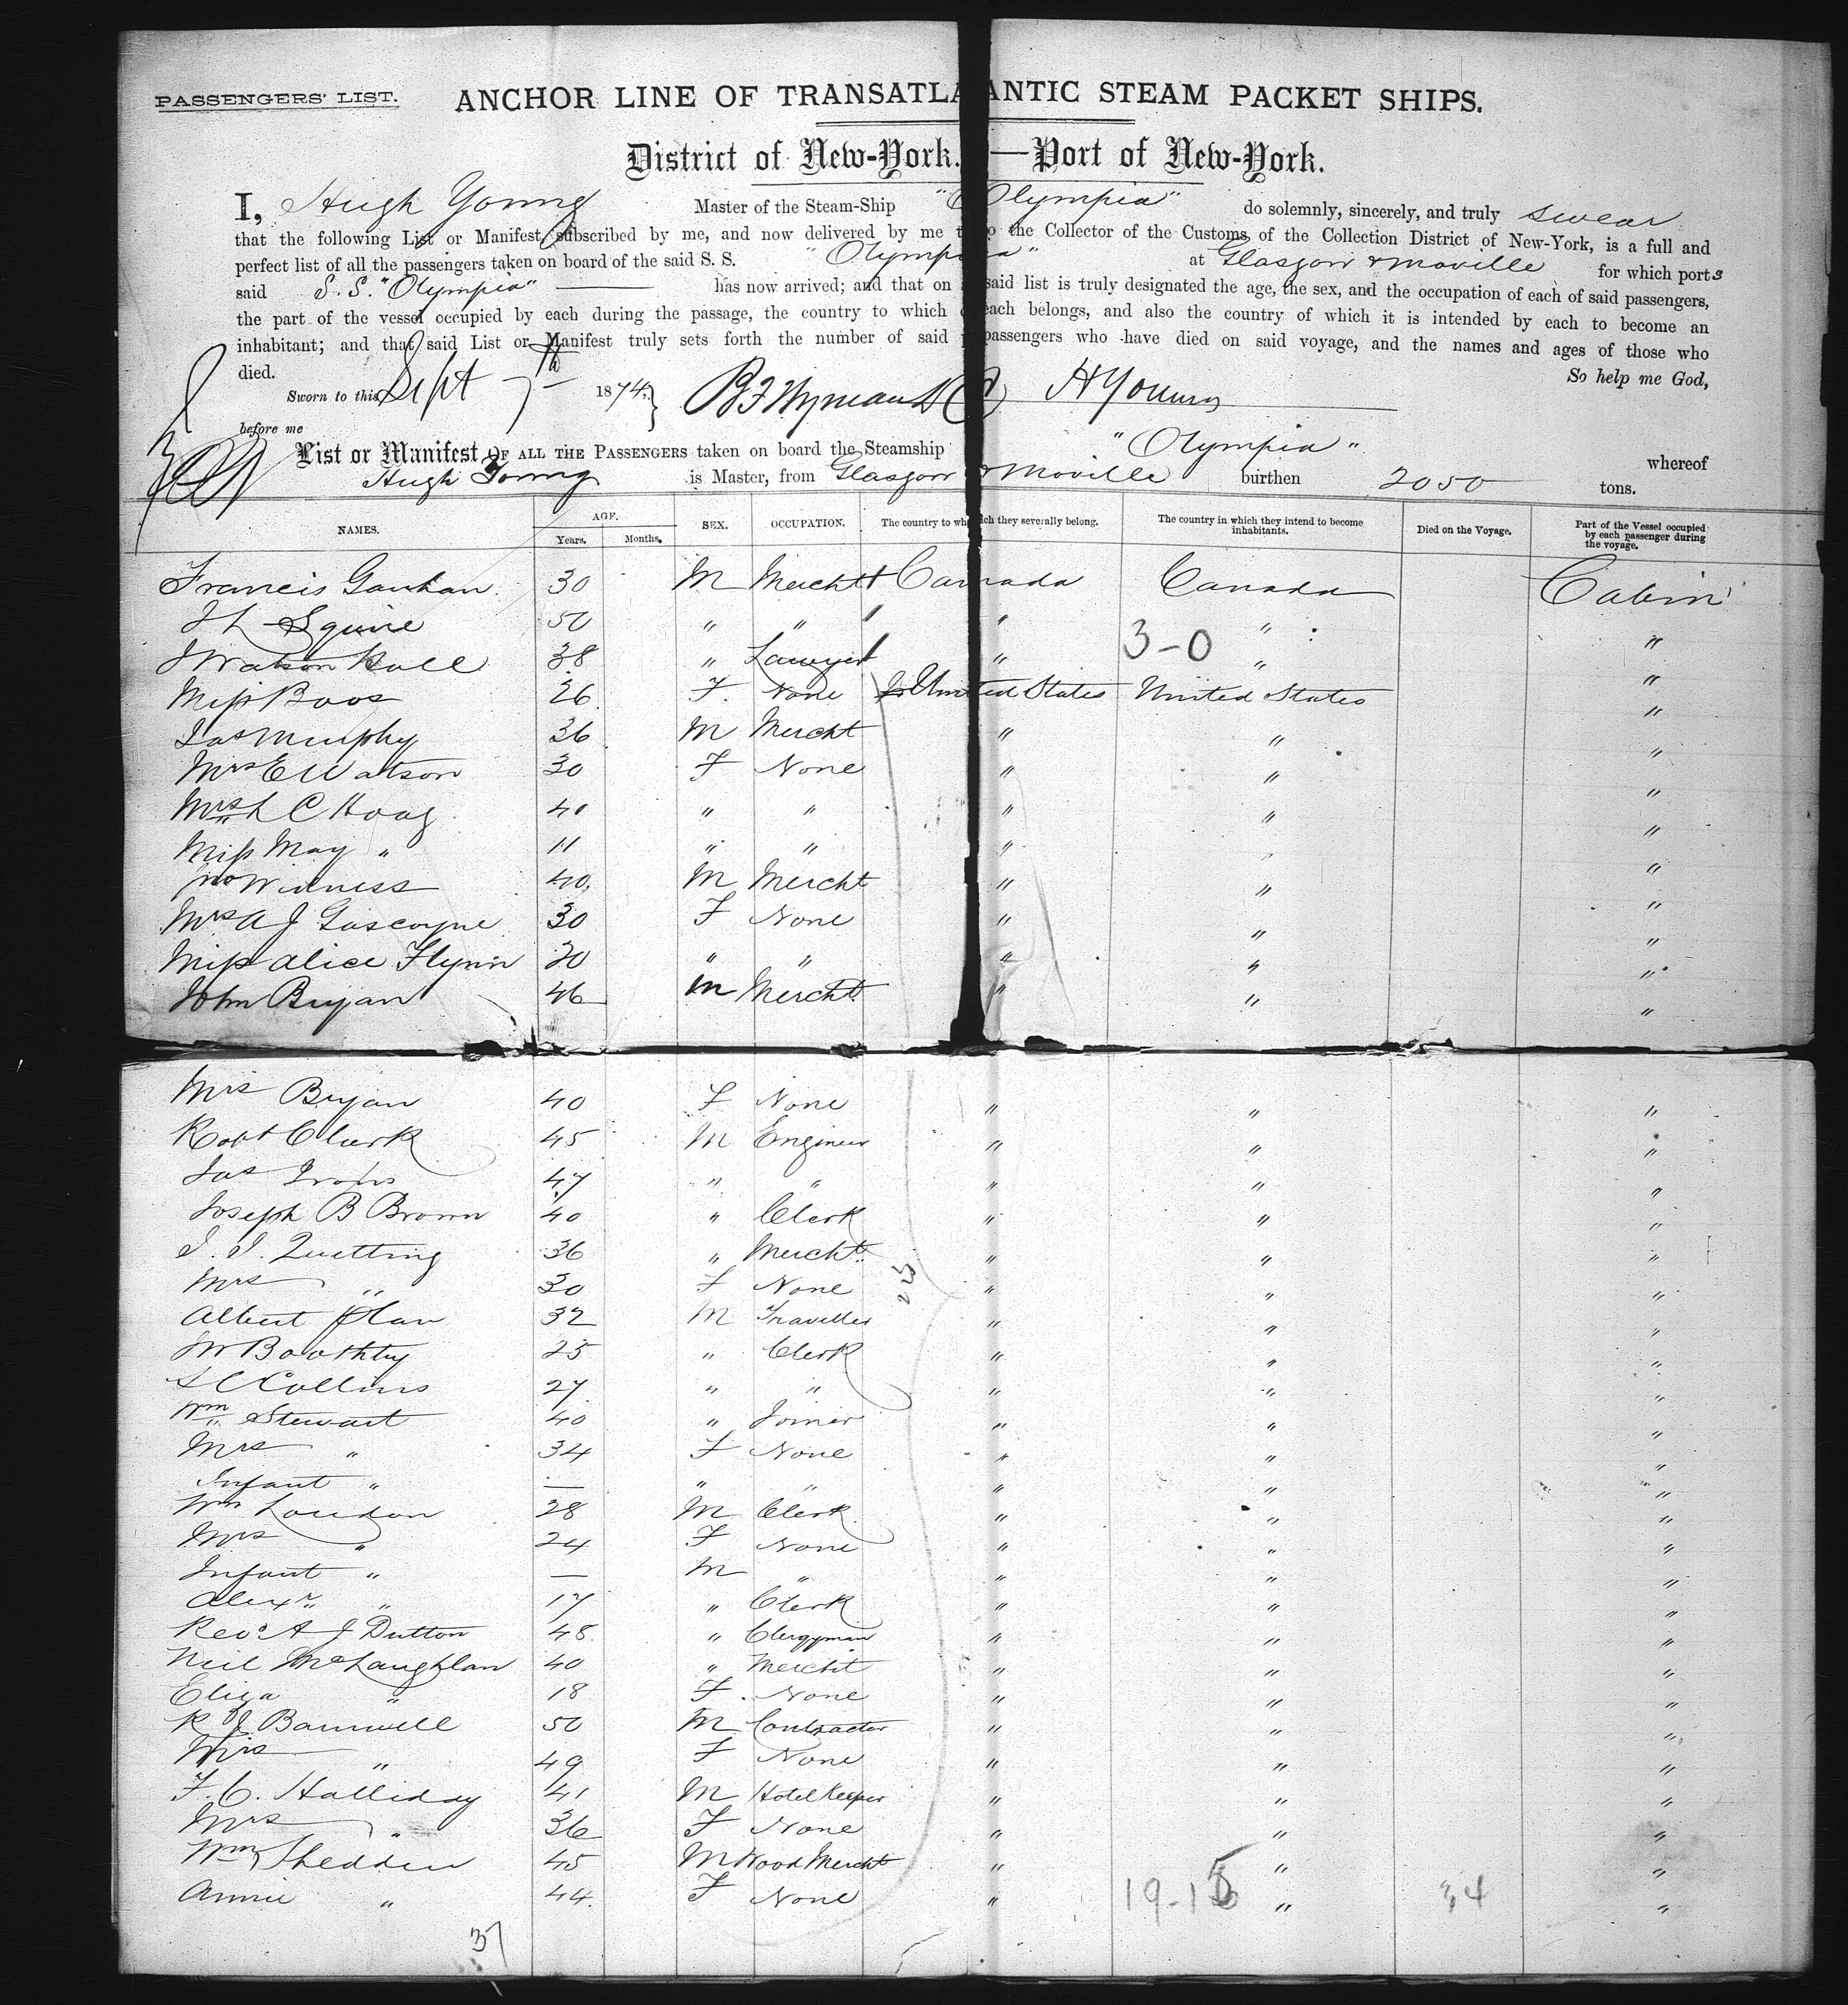 PASSENGERS' LIST. ANCHOR LINE OF TRANSATLANTIC STEAM PACKET SHIPS.
District of New-York.—Port of New-York.
I, Hugh Young Master of the Steam-Ship "Olympia" do solemnly, sincerely, and truly swear
that the following List or Manifest, subscribed by me, and now delivered by me to the Collector of the Customs of the Collection District of New-York, is a full and
perfect list of all the passengers taken on board of the said S. S. "Olympia" at Glasgow & Moville for which ports
said S.S. "Olympia" has now arrived; and that on said list is truly designated the age, the sex, and the occupation of each of said passengers,
the part of the vessel occupied by each during the passage, the country to which each belongs, and also the country of which it is intended by each to become an
inhabitant; and that said List or Manifest truly sets forth the number of said passengers who have died on said voyage, and the names and ages of those who
died. So help me God,
Sworn to this Sept 7th 1874 } B F Wyman H Young
before me
List or Manifest OF ALL THE PASSENGERS taken on board the Steamship "Olympia" whereof
Hugh Young is Master, from Glasgow & Moville burthen 2050 tons.
NAMES. AGE. SEX. OCCUPATION. The country to which they severally belong. The country in which they intend to become inhabitants. Died on the Voyage. Part of the Vessel occupied by each passenger during the voyage.
Years. Months.
Francis 30 M Mercht Canada Canada Cabin
Squire 50 " " " " "
J Watson 38 " Lawyer " 3-0 " "
Miss Boos 26 F. None United States United States "
Jas Murphy 36 M Mercht " " "
Mrs E Watson 30 F None " " "
Mrs L C Hoag 40 " " " " "
Miss May " 11 " " " " "
40 M Mercht " " "
Mrs A J Gascoyne 30 F None " " "
Miss Alice Flynn 20 " " " " "
John Bryan 46 M Mercht " " "
Mrs Bryan 40 F None " " "
Robt Clark 45 M Engineer " " "
Jas Irons 47 " " " " "
Joseph B Brown 40 " Clerk " " "
J. J. Quetting 36 " Mercht " " "
Mrs " 30 F None " " "
Albert 32 M Traveller " " "
Boothby 25 " Clerk " " "
S C Collins 27 " " " " "
Wm Stewart 40 " Joiner " " "
Mrs " 34 F None " " "
Infant " — " " " " "
Wm Loudon 28 M Clerk " " "
Mrs " 24 F None " " "
Infant " — M " " " "
Alexr " 17 " Clerk " " "
Revd A J Dutton 48 " Clergyman " " "
Neil McLaughlan 40 " Mercht " " "
Eliza " 18 F. None " " "
R J Barnwell 50 M Contractor " " "
Mrs " 49 F None " " "
F. C. Halliday 41 M Hotel Keeper " " "
Mrs " 36 F None " " "
Wm Shedden 45 M Wood Mercht " " "
Annie " 44 F None " 19-15 " 34 "
37